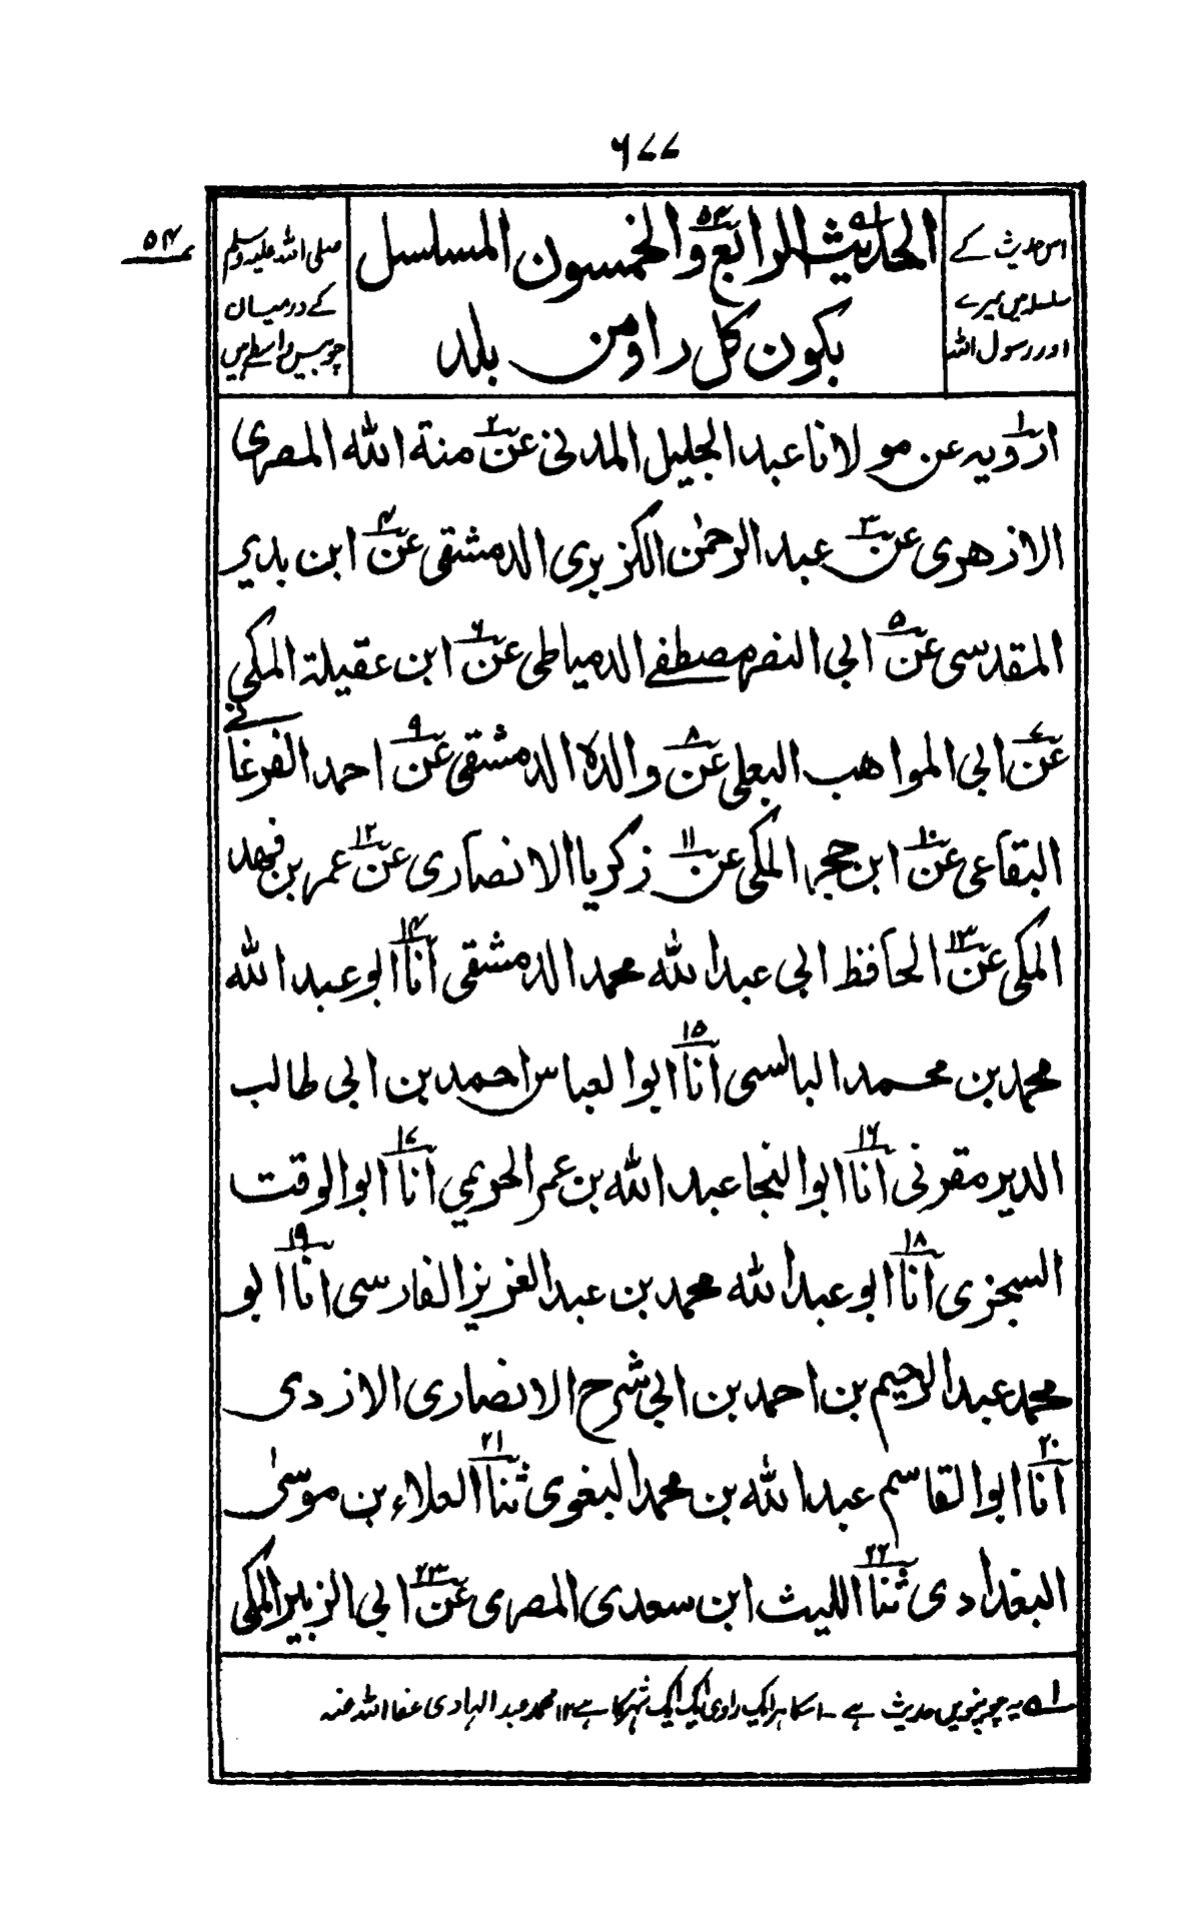 ۶۷۷
۵۴
اس حدیث کے
سلسلہ میں میرے
اور رسول اللہ
الحدیث الرابع والخمسون المسلسل
بکون کل راو من بلد
صلی اللہ علیہ وسلم
کے درمیان
چوبیس واسطے ہیں
ارویہ عن مولانا عبد الجلیل المدنی عن منۃ اللہ المصری
الازھری عن عبد الرحمٰن الکزبری الدمشقی عن ابن بدیر
المقدسی عن ابی النصر مصطفے الدمیاطی عن ابن عقیلۃ المکی
عن ابی المواھب البعلی عن والدہ الدمشقی عن احمد الفرغانے
البقاعی عن ابن حجر المکی عن زکریا الانصاری عن عمر بن فہد
المکی عن الحافظ ابی عبد اللہ محمد الدمشقی انا ابو عبد اللہ
محمد بن محمد البالسی انا ابو العباس احمد بن ابی طالب
الدیر مقرنی انا ابو النجا عبد اللہ بن عمر الحریمي انا ابو الوقت
السجزی انا ابو عبد اللہ محمد بن عبد العزیز الفارسی انا ابو
محمد عبد الرحیم بن احمد بن ابی شرح الانصاری الازدی
انا ابو القاسم عبد اللہ بن محمد البغوی ثنا العلاء بن موسیٰ
البغدادی ثنا اللیث ابن سعدی المصری عن ابی الزبیر المکی
۱؎ یہ چوپنویں حدیث ہے ۔ اسکا ہر ایک راوی ایک ایک شہر کا ہے ۱۲ محمد عبد الہادی عفا اللہ عنہ